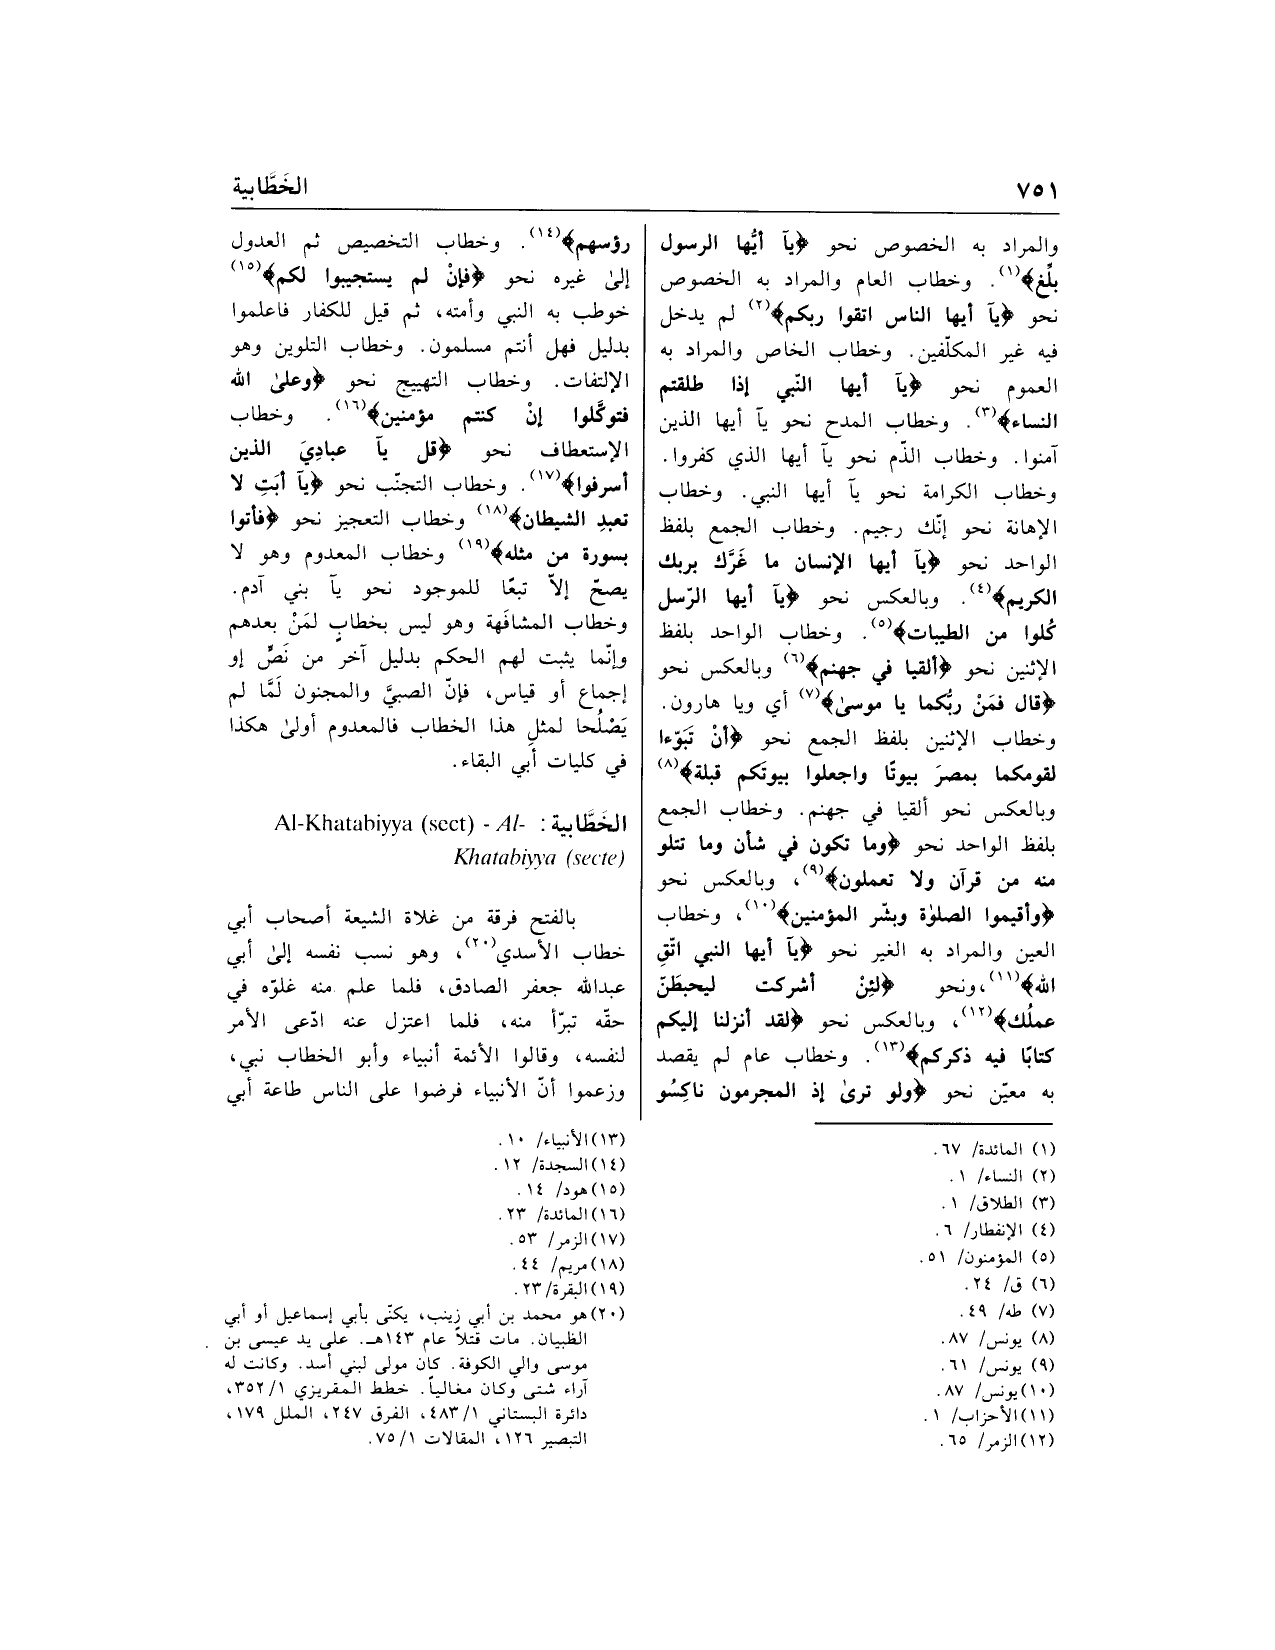 ٧٥١
الخَطَّابية
والمراد به الخصوص نحو ﴿يآ أيُّها الرسول
بلِّغ﴾(١). وخطاب العام والمراد به الخصوص
نحو ﴿يآ أيها الناس اتقوا ربكم﴾(٢) لم يدخل
فيه غير المكلّفين. وخطاب الخاص والمراد به
العموم نحو ﴿يآ أيها النّبي إذا طلقتم
النساء﴾(٣). وخطاب المدح نحو يآ أيها الذين
آمنوا. وخطاب الذّم نحو يآ أيها الذي كفروا.
وخطاب الكرامة نحو يآ أيها النبي. وخطاب
الإهانة نحو إنّك رجيم. وخطاب الجمع بلفظ
الواحد نحو ﴿يآ أيها الإنسان ما غَرَّك بربك
الكريم﴾(٤). وبالعكس نحو ﴿يآ أيها الرّسل
كُلوا من الطيبات﴾(٥). وخطاب الواحد بلفظ
الإثنين نحو ﴿ألقيا في جهنم﴾(٦) وبالعكس نحو
﴿قال فمَنْ ربُّكما يا موسىٰ﴾(٧) أي ويا هارون.
وخطاب الإثنين بلفظ الجمع نحو ﴿أنْ تَبَوّءا
لقومكما بمصرَ بيوتًا واجعلوا بيوتَكم قبلة﴾(٨)
وبالعكس نحو ألقيا في جهنم. وخطاب الجمع
بلفظ الواحد نحو ﴿وما تكون في شأن وما تتلو
منه من قرآن ولا تعملون﴾(٩)، وبالعكس نحو
﴿وأقيموا الصلوٰة وبشّر المؤمنين﴾(١٠)، وخطاب
العين والمراد به الغير نحو ﴿يآ أيها النبي اتّقِ
الله﴾(١١)،ونحو ﴿لئِنْ أشركت ليحبطَنّ
عملُك﴾(١٢)، وبالعكس نحو ﴿لقد أنزلنا إليكم
كتابًا فيه ذكركم﴾(١٣). وخطاب عام لم يقصد
به معيّن نحو ﴿ولو ترىٰ إذ المجرمون ناكِسُو
رؤسهم﴾(١٤). وخطاب التخصيص ثم العدول
إلىٰ غيره نحو ﴿فإنْ لم يستجيبوا لكم﴾(١٥)
خوطب به النبي وأمته، ثم قيل للكفار فاعلموا
بدليل فهل أنتم مسلمون. وخطاب التلوين وهو
الإلتفات. وخطاب التهييج نحو ﴿وعلىٰ الله
فتوكَّلوا إنْ كنتم مؤمنين﴾(١٦). وخطاب
الإستعطاف نحو ﴿قل يآ عباديَ الذين
أسرفوا﴾(١٧). وخطاب التجنّب نحو ﴿يآ أبَتِ لا
تعبدِ الشيطان﴾(١٨) وخطاب التعجيز نحو ﴿فأتوا
بسورة من مثله﴾(١٩) وخطاب المعدوم وهو لا
يصحّ إلاّ تبعًا للموجود نحو يآ بني آدم.
وخطاب المشافَهة وهو ليس بخطابٍ لمَنْ بعدهم
وإنّما يثبت لهم الحكم بدليل آخر من نَصٍّ إو
إجماع أو قياس، فإنّ الصبيَّ والمجنون لَمَّا لم
يَصْلُحا لمثلِ هذا الخطاب فالمعدوم أولىٰ هكذا
في كليات أبي البقاء.
الخَطَّابية : Al-Khatabiyya (sect) - Al-
Khatabiyya (secte)
بالفتح فرقة من غلاة الشيعة أصحاب أبي
خطاب الأسدي(٢٠)، وهو نسب نفسه إلىٰ أبي
عبدالله جعفر الصادق، فلما علم منه غلوّه في
حقّه تبرّأ منه، فلما اعتزل عنه ادّعى الأمر
لنفسه، وقالوا الأئمة أنبياء وأبو الخطاب نبي،
وزعموا أنّ الأنبياء فرضوا على الناس طاعة أبي
(١) المائدة/ ٦٧.
(٢) النساء/ ١.
(٣) الطلاق/ ١.
(٤) الإنفطار/ ٦.
(٥) المؤمنون/ ٥١.
(٦) ق/ ٢٤.
(٧) طه/ ٤٩.
(٨) يونس/ ٨٧.
(٩) يونس/ ٦١.
(١٠) يونس/ ٨٧.
(١١) الأحزاب/ ١.
(١٢) الزمر/ ٦٥.
(١٣) الأنبياء/ ١٠.
(١٤) السجدة/ ١٢.
(١٥) هود/ ١٤.
(١٦) المائدة/ ٢٣.
(١٧) الزمر/ ٥٣.
(١٨) مريم/ ٤٤.
(١٩) البقرة/ ٢٣.
(٢٠) هو محمد بن أبي زينب، يكنّى بأبي إسماعيل أو أبي
الظبيان. مات قتلاً عام ١٤٣هـ. على يد عيسى بن
موسى والي الكوفة. كان مولى لبني أسد. وكانت له
آراء شتى وكان مغالياً. خطط المقريزي ١/ ٣٥٢،
دائرة البستاني ١/ ٤٨٣، الفرق ٢٤٧، الملل ١٧٩،
التبصير ١٢٦، المقالات ١/ ٧٥.